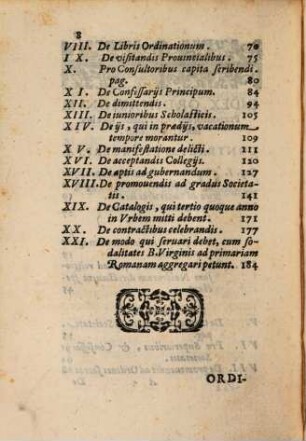 8
VIII. De Libris Ordinationum. 70
IX. De visitandis Prouincialibus. 75
X. Pro Consultoribus capita scribendi.
pag. 80
XI. De Confessarijs Principum. 84
XII. De dimittendis. 94
XIII. De iunioribus Scholasticis. 105
XIV. De ijs, qui in prædijs, vacationum
tempore morantur. 109
XV. De manifestatione delicti. 111
XVI. De acceptandis Collegijs. 120
XVII. De aptis ad gubernandum. 127
XVIII. De promouendis ad gradus Societa-
tis. 141
XIX. De Catalogis, qui tertio quoque anno
in Vrbem mitti debent. 171
XX. De contractibus celebrandis. 177
XXI. De modo qui seruari debet, cum so-
dalitates B. Virginis ad primariam
Romanam aggregari petunt. 184
ORDI-